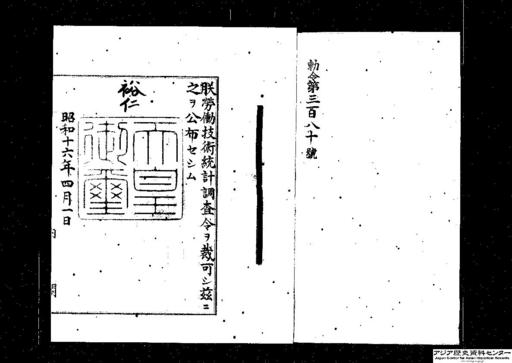 勅令第三百八十號
朕勞働技術統計調査令ヲ裁可シ茲ニ
之ヲ公布セシム
裕仁
天皇御璽
昭和十六年四月一日
内閣
アジア歴史資料センター
Japan Center for Asian Historical Records